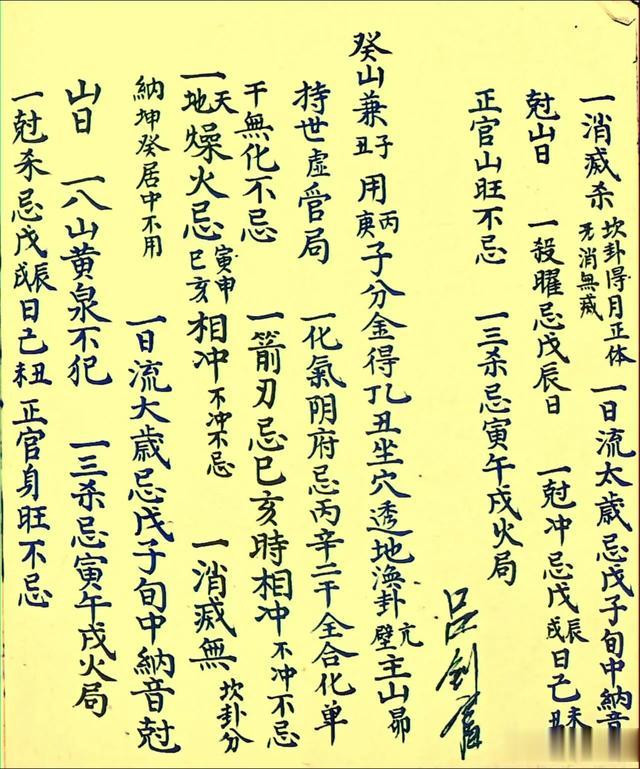 一消滅杀 坎卦得月正体 无消無滅 一日流太歲忌戊子旬中納音
尅山日 一殺曜忌戊辰日 一尅冲忌戊辰戌日己未丑
正官山旺不忌 一三杀忌寅午戌火局
癸山兼子丑用丙庚子分金得丁丑坐穴透地渙卦亢壁主山昴
持世虛官局 一化氣阴府忌丙辛二干全合化单
干無化不忌 一箭刃忌巳亥時相冲不冲不忌
一天地燥火忌寅申巳亥相冲不冲不忌 一消滅無坎卦分
納坤癸居中不用 一日流大歲忌戊子旬中納音尅
山日 一八山黄泉不犯 一三杀忌寅午戌火局
一尅杀忌戊辰戌日己丑未正官身旺不忌